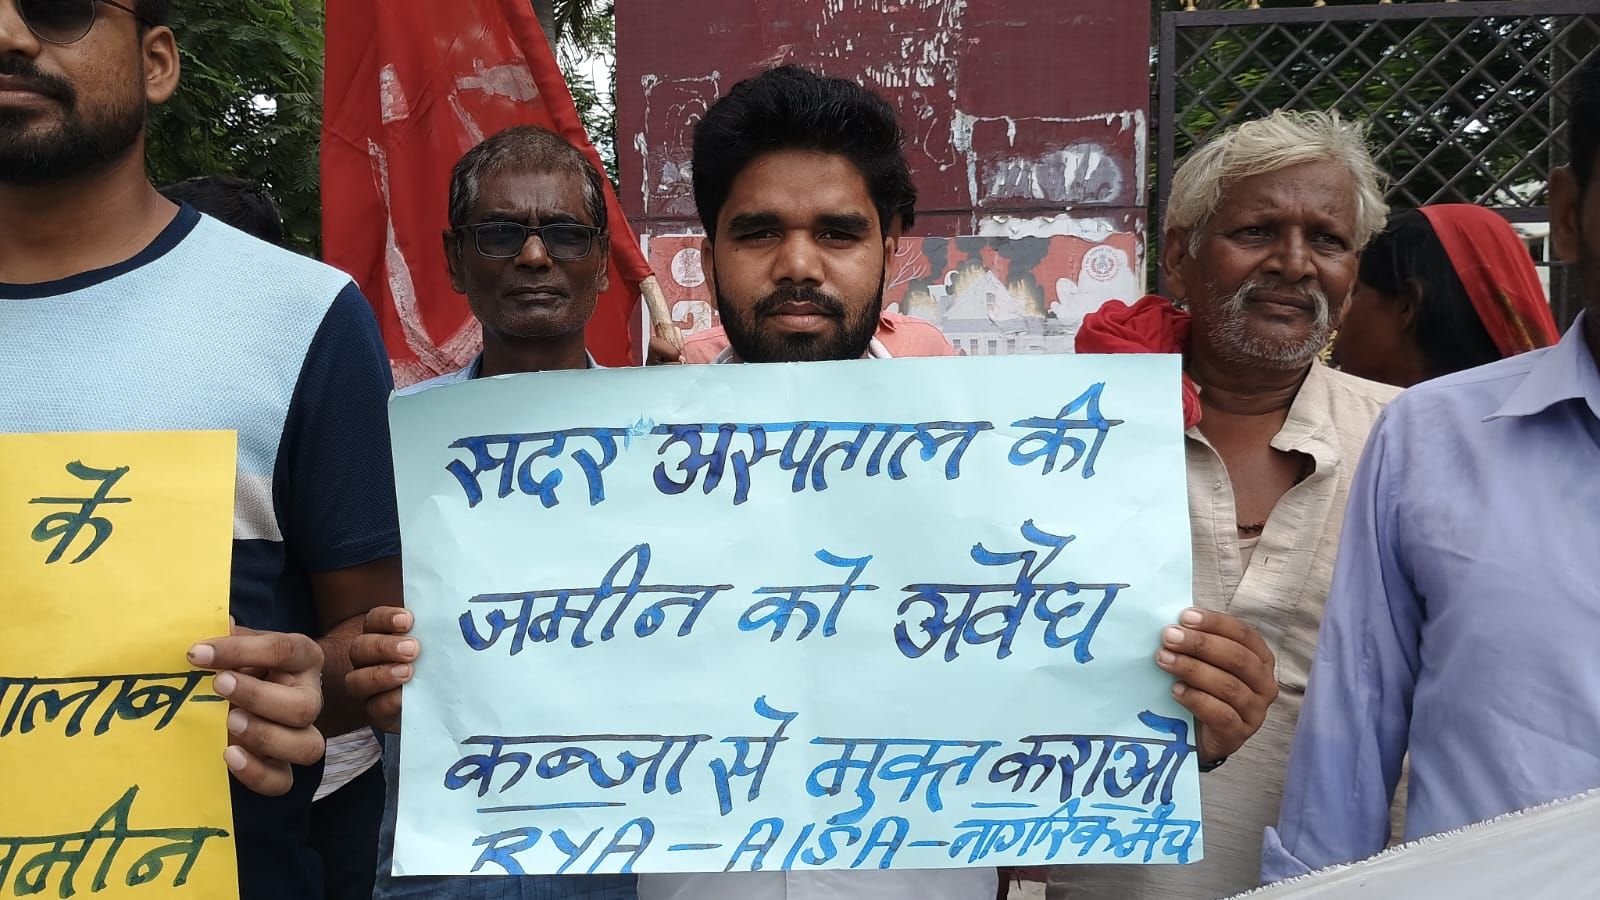 के
लाब-
जमीन
सदर अस्पताल की
जमीन को अवैध
कब्जा से मुक्त कराओ
RYA-AISA-नागरिक मंच